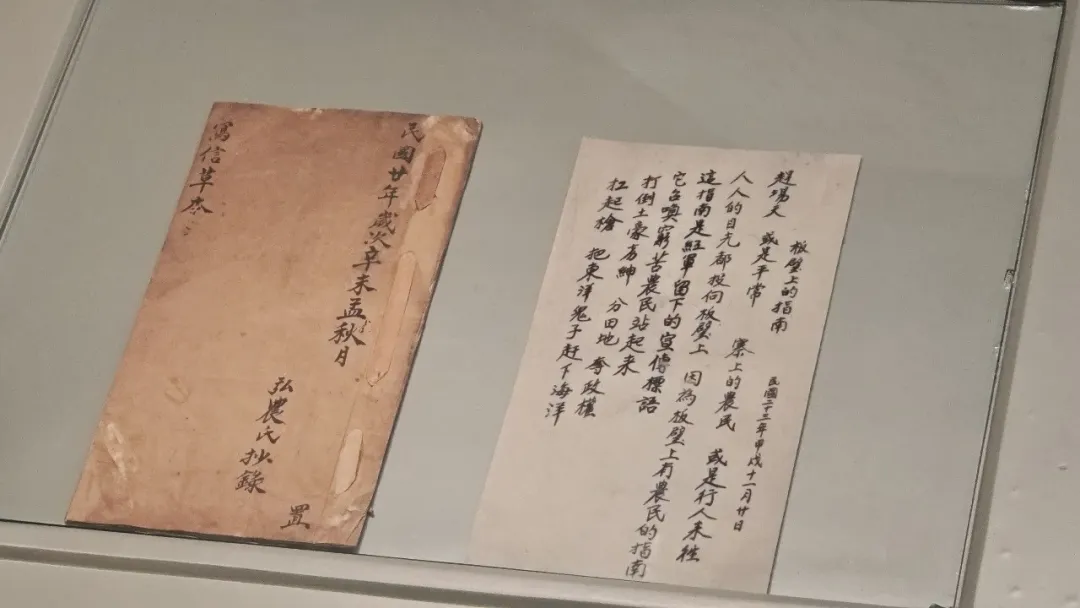 民國廿年歲次辛未孟秋月
弘農氏抄錄 置
寫信草本
板壁上的指南
民國二十三年甲戌十一月廿日
趕場天 或是平常 寨上的農民 或是行人來往
人人的目光都投向板壁上 因為板壁上有農民的指南
這指南是紅軍留下的宣傳標語
它召喚窮苦農民站起來
打倒土豪劣紳 分田地 奪政權
扛起槍 把東洋鬼子趕下海洋